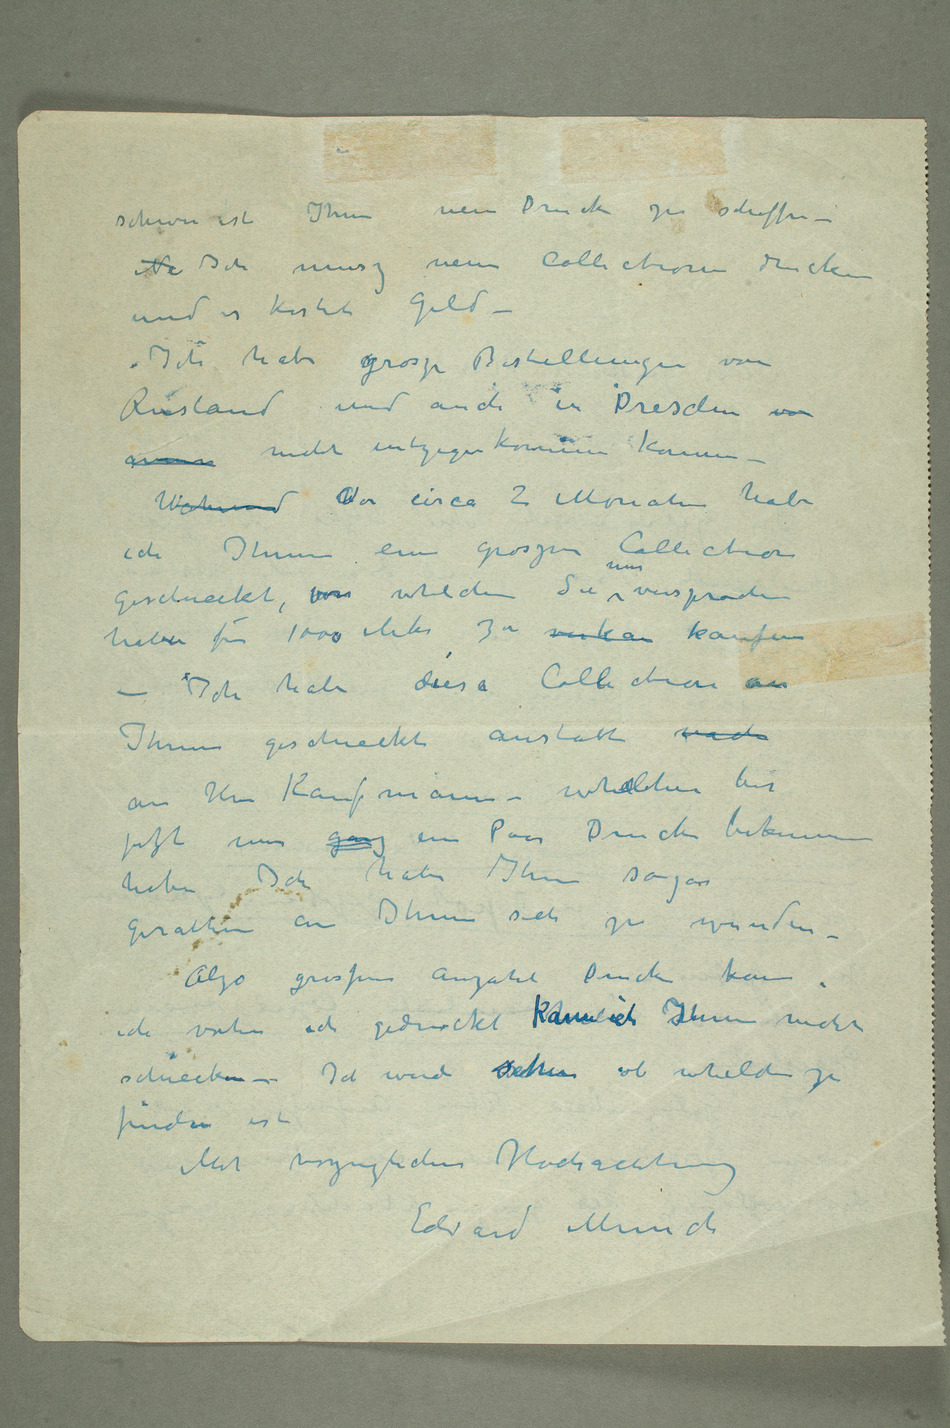 schwer ist Ihnen neue Drucke zu schaffen –
Ich musz neue Collectionen drucken
und es kostet Geld –
Ich habe grosze Bestellungen von
Rusland und auch in Dresden
nicht entgegenkommen konnen –
Wahrend Vor circa 2 Monaten habe
ich Ihnen eine groszen Collection
geschieckt, von whelchen Sie mir versprochen
haben für 1000 Mk zu verkau kaufen
– Ich habe diese Collection an
Ihnen geschieckt anstatt nach
an Hrn Kaufmann – whelcher bis
jetzt nur ganz ein Paar Drucke bekommen
haben Ich habe Ihm sogar
gerathen an Ihnen sich zu wenden –
Also grosser Anzahl Drucke kann
ich vorher ich gedruckt kann ich Ihnen nicht
schiecken – Ich werde sehen ob whelche zu
finden ist
Mit vorzuglicher Hochachtung
Edvard Munch